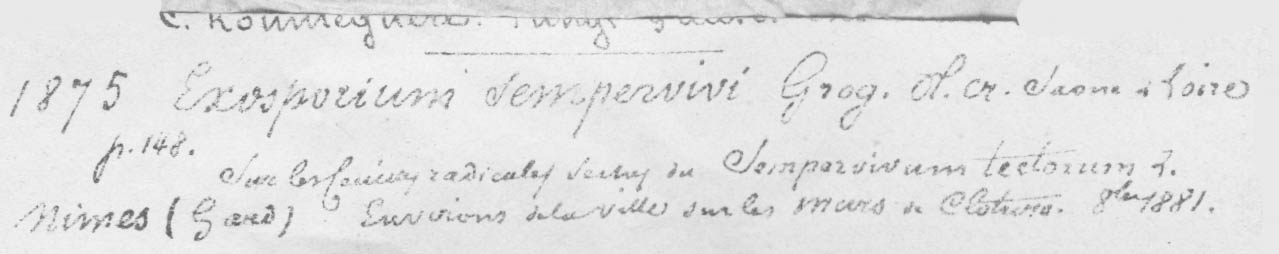 C. Roumeguère.
1875 Exosporium Sempervivi Grog. Pl. cr. Saone & Loire
p. 148.
Sur les feuilles radicales seches du Sempervivum tectorum L.
Nimes (Gard) Environs de la ville sur les murs de Cloture. 8bre 1881.